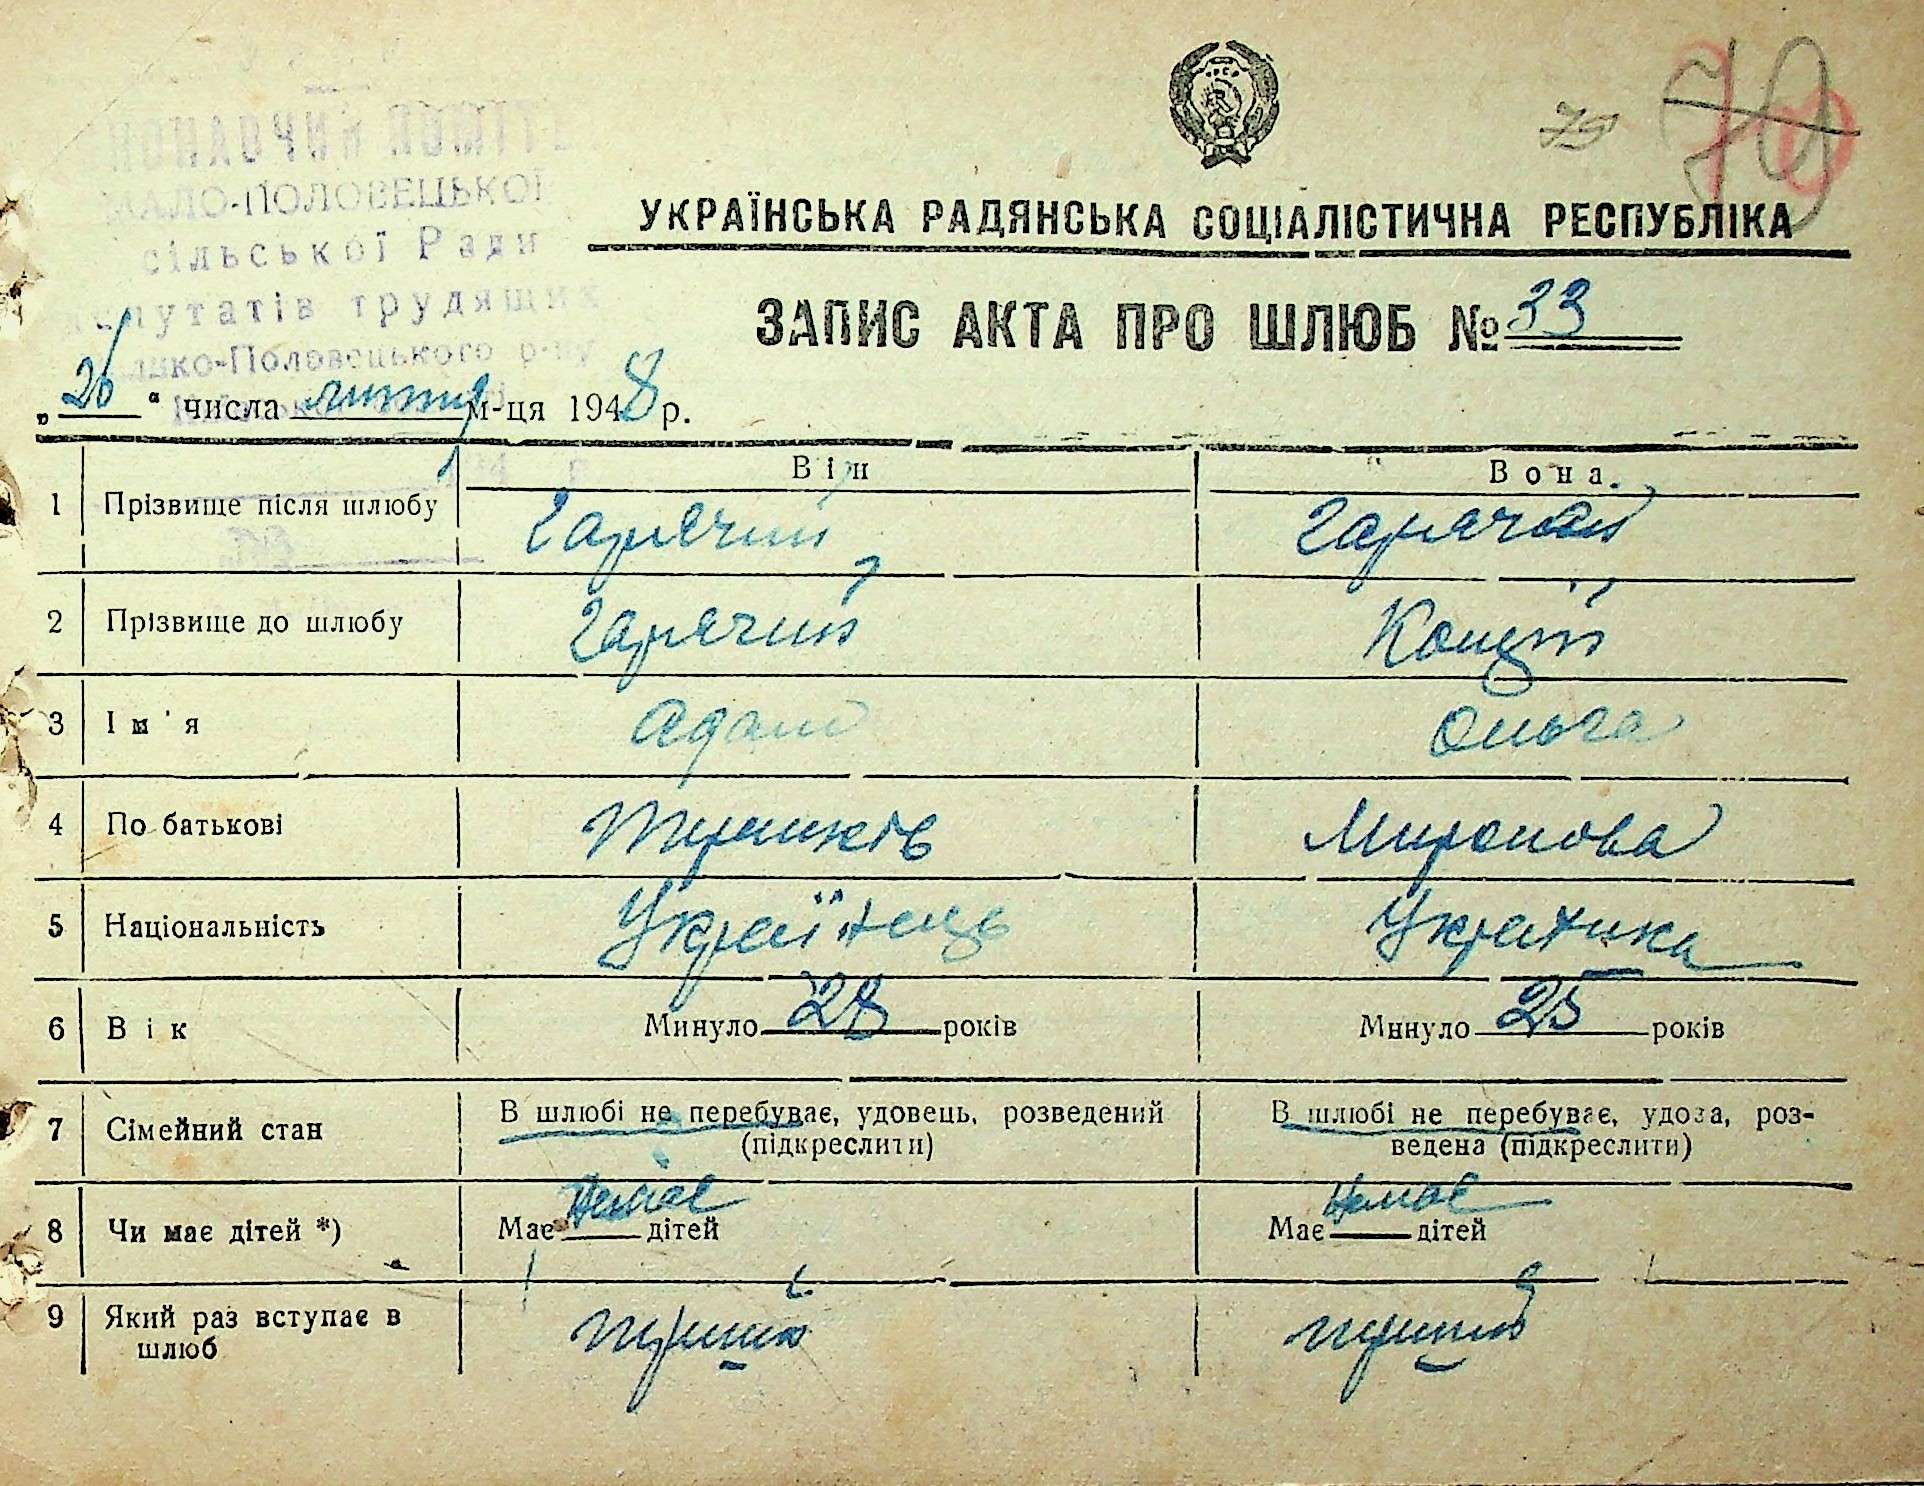 МАЛО-ПОЛОВЕЦЬКОЇ
сільської Ради
трудящих
70 70
УКРАЇНСЬКА РАДЯНСЬКА СОЦІАЛІСТИЧНА РЕСПУБЛІКА
ЗАПИС АКТА ПРО ШЛЮБ № 33
„26“ числа лютня м-ця 1948 р.
Він Вона
1 Прізвище після шлюбу Гарячий Гаряча
2 Прізвище до шлюбу Гарячий Коцюй
3 Ім'я Адам Ольга
4 По батькові Миронова
5 Національність Українець Украинка
6 Вік Минуло 28 років Минуло 25 років
7 Сімейний стан В шлюбі не перебуває, удовець, розведений В шлюбі не перебуває, удова, роз-
(підкреслити) ведена (підкреслити)
8 Чи має дітей *) Має немає дітей Має немає дітей
9 Який раз вступає в перший перший
шлюб